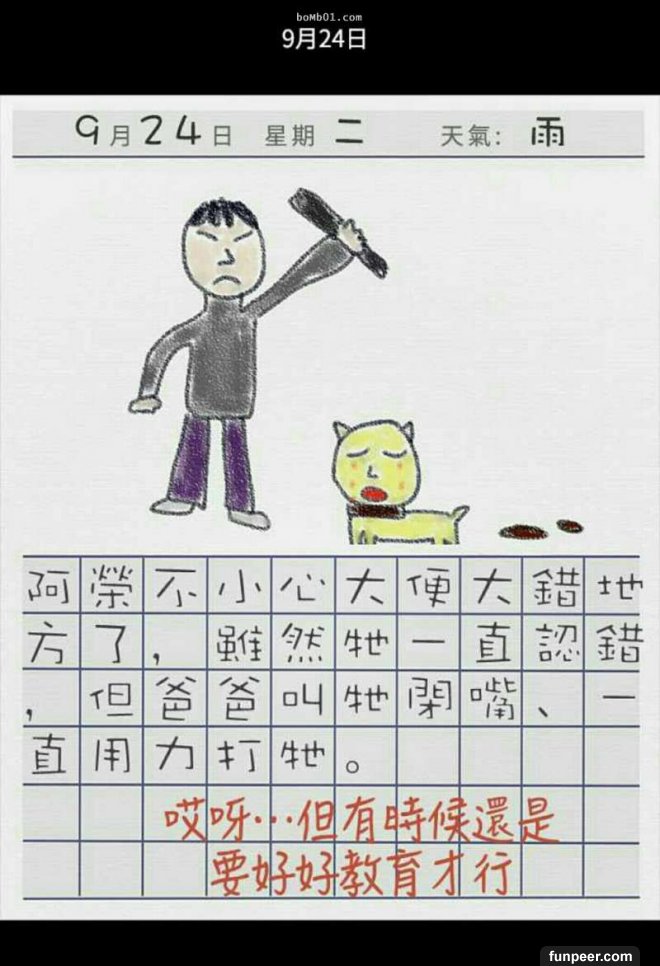 bomb01.com
9月24日
9月24日 星期 二 天氣: 雨
阿榮不小心大便大錯地
方了，雖然牠一直認錯
，但爸爸叫牠閉嘴、一
直用力打牠。
哎呀…但有時候還是
要好好教育才行
funpeer.com